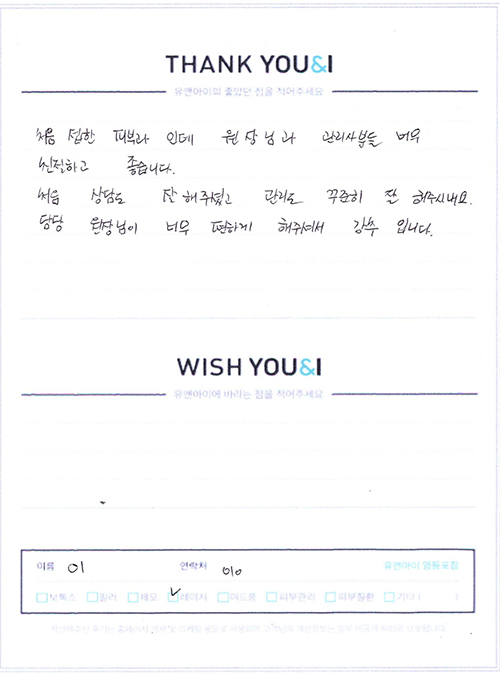 THANK YOU&I
유앤아이의 좋았던 점을 적어주세요
처음 접한 피부과 인데 원장님과 관리사분들 너무
친절하고 좋습니다.
처음 상담도 잘 해주셨고 관리도 꾸준히 잘 해주시네요.
담당 원장님이 너무 편하게 해줘여서 강추 입니다.
WISH YOU&I
유앤아이에 바라는 점을 적어주세요
이름 이 연락처 010 유앤아이 영등포점
보톡스 필러 제모 레이저 여드름 피부관리 피부질환 기타 ( )